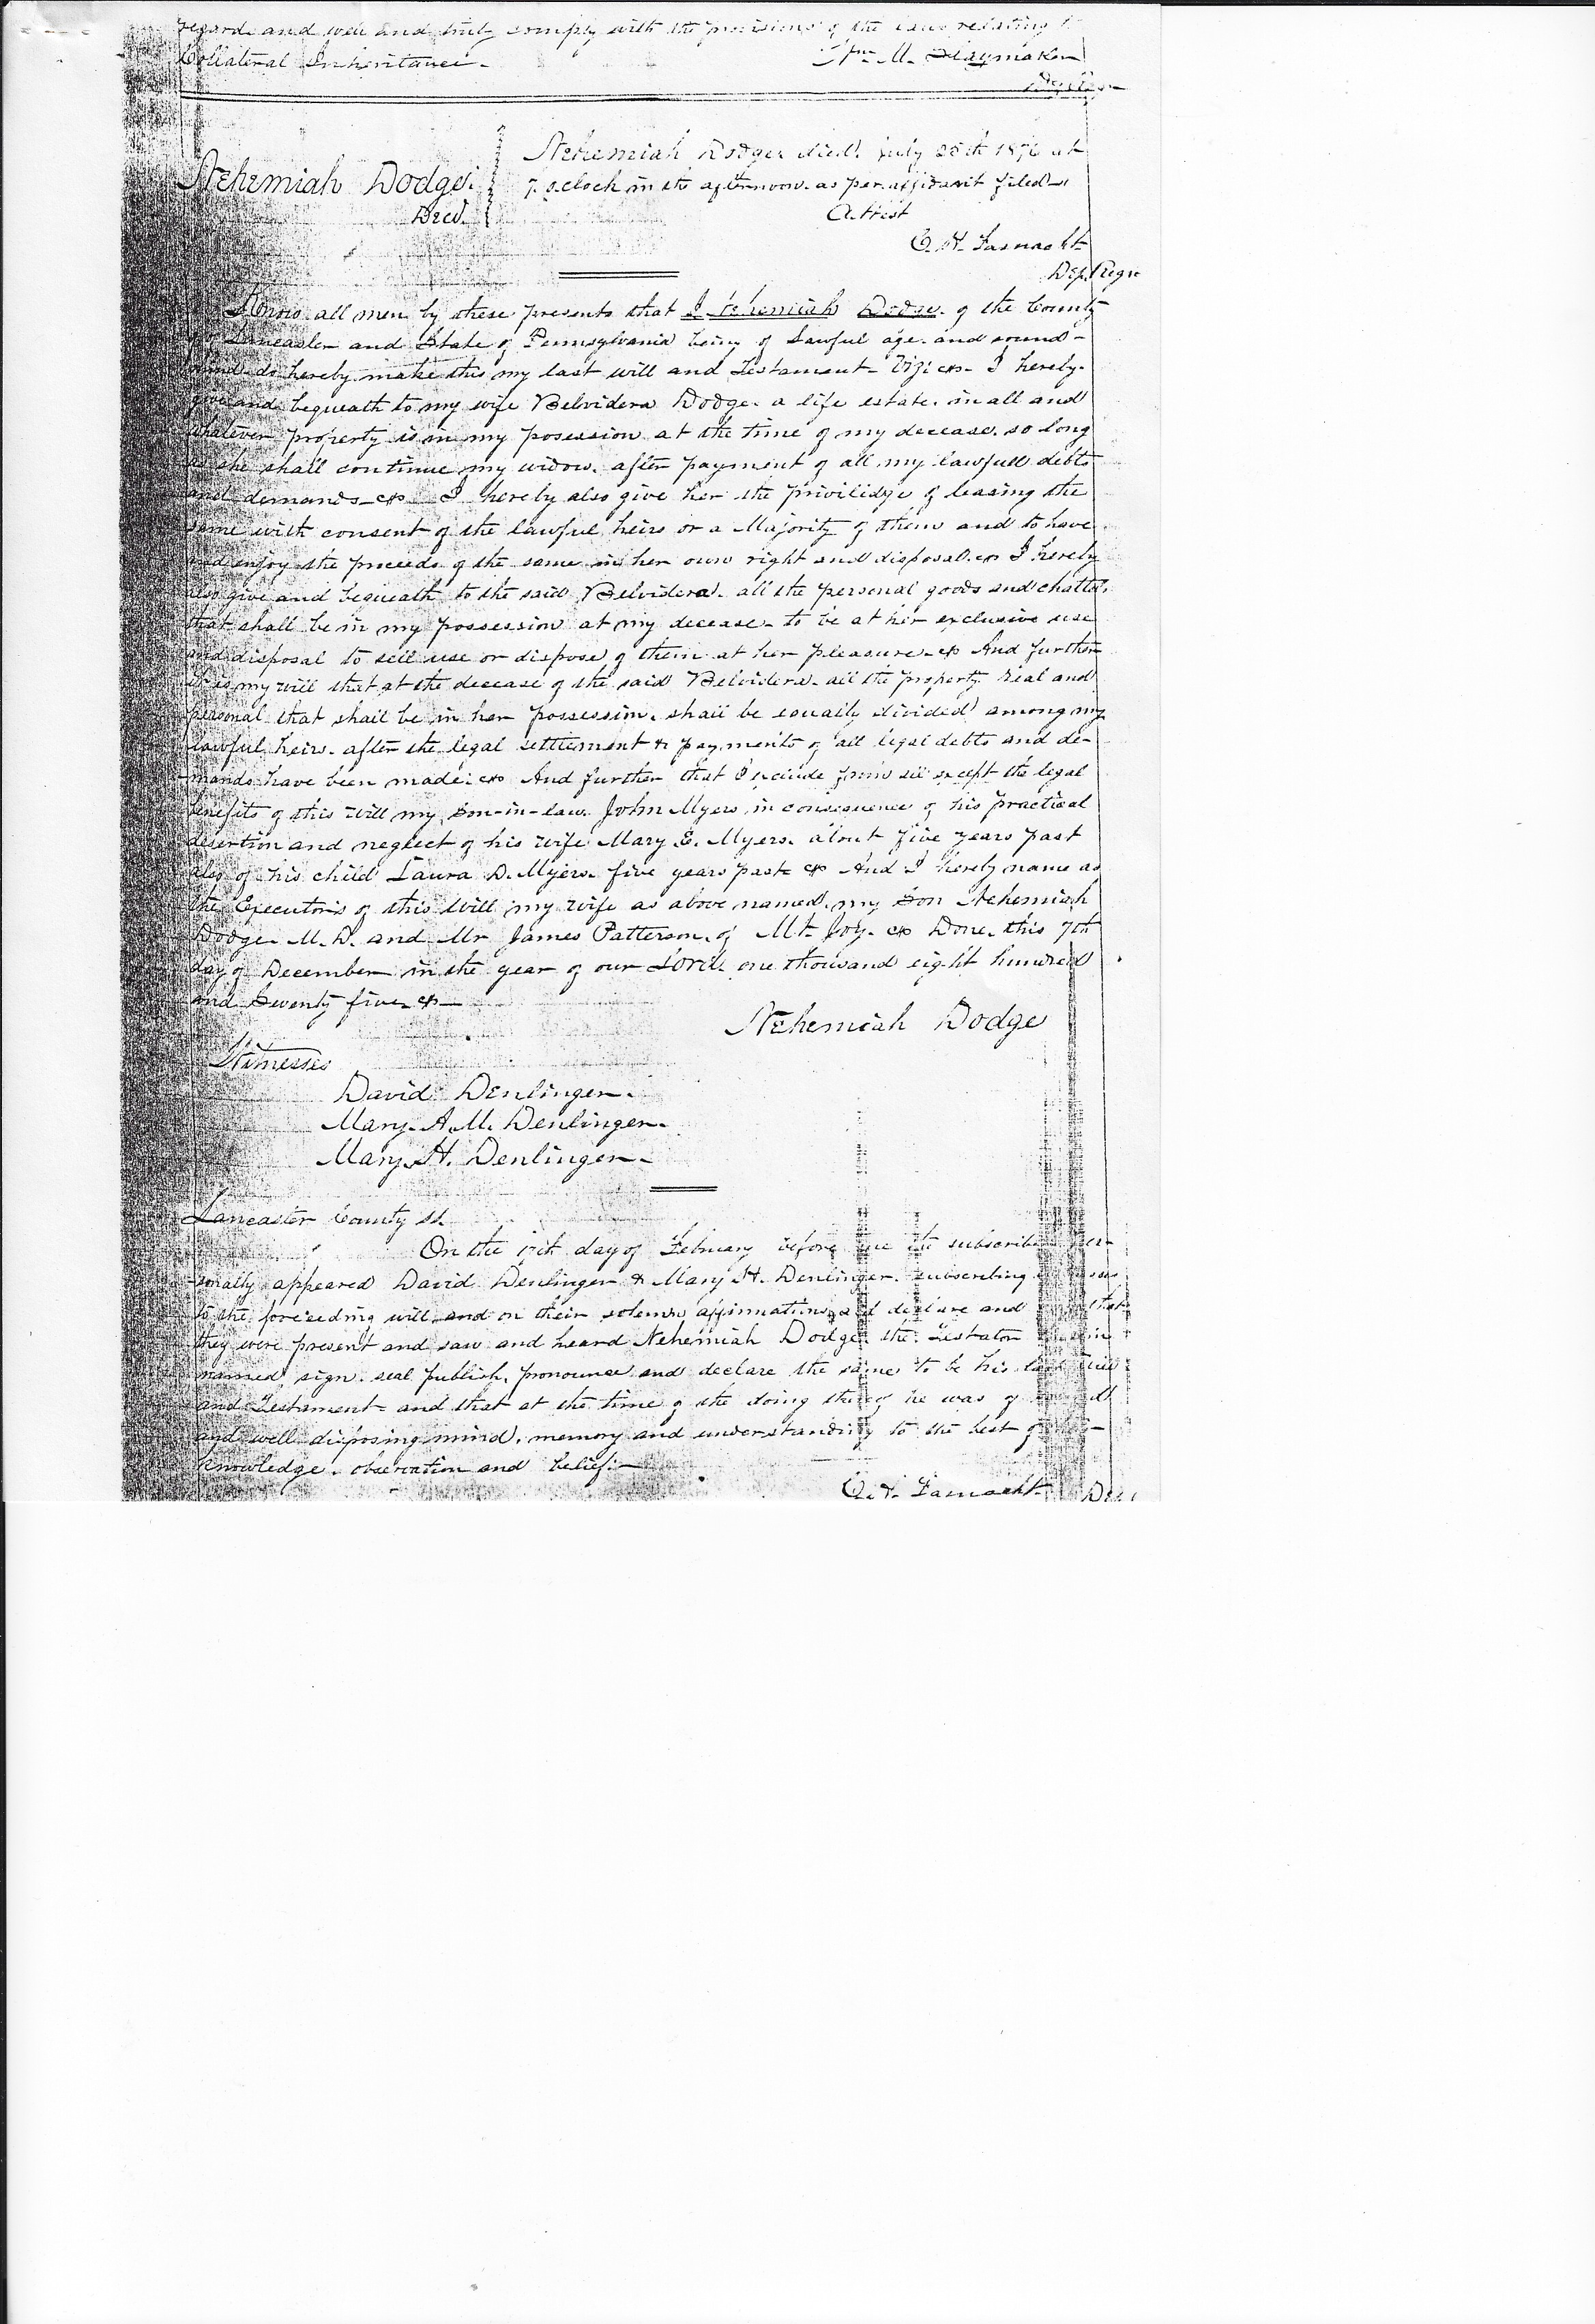 regard and well and truly comply with the provisions of the Laws relating to
Collateral Inheritance.
Wm. M. Slaymaker
Nehemiah Dodge.
Decd.
Nehemiah Dodge died. July 28th 1876 at
7. oclock in the afternoon. as per affidavit filed
Attest
C. H. Fasnacht
Dep. Regr
Know all men by these presents that I Nehemiah Dodge. of the County
of Lancaster and State of Pennsylvania being of Lawful age. and sound-
mind do hereby make this my last will and Testament- Viz: &c- I hereby-
give and bequeath to my wife Belvidera Dodge. a life estate. in all and
whatever property is in my posession at the time of my decease. so long
as she shall continue my widow. after payment of all my lawfull debts
and demands- &c I hereby also give her the priviledge of leasing the
same with consent of the lawful heirs or a Majority of them and to have
and enjoy the proceeds of the same in her own right and disposal. &c I hereby
also give and bequeath to the said Belvidera. all the personal goods and chattels
that shall be in my possession at my decease- to be at her exclusive use
and disposal to sell use or dispose of them at her pleasure. &c And further
it is my will that at the decease of the said Belvidera- all the property real and
personal that shall be in her possession. shall be equally divided among my
lawful heirs. after the legal settlement & payments of all legal debts and de-
mands have been made: &c And further that I exclude from all except the legal
benefits of this will my Son-in-law. John Myers in consequence of his practical
desertion and neglect of his wife Mary E. Myers. about five years past
also of his child Laura D. Myers. five years past &c And I hereby name as
the Executors of this Will my wife as above named. my Son Nehemiah
Dodge. M.D. and Mr James Patterson. of Mt. Joy. &c Done. this 7th
day of December in the year of our Lord. one thousand eight hundred
and Seventy five. &c-
Nehemiah Dodge
Witnesses
David Denlinger.
Mary. A. M. Denlinger.
Mary H. Denlinger.
Lancaster County ss.
On the 17th day of February before me the subscriber per-
sonally appeared David Denlinger & Mary H. Denlinger. subscribing
to the foreceeding will and on their solemn affirmation did declare and that
they were present and saw and heard Nehemiah Dodge. the Testator
named, sign. seal publish, pronounce and declare the same to be his last will
and Testament- and that at the time of the doing thereof he was of
and well disposing mind. memory and understanding to the best of
knowledge. observation and belief.-
C. H. Fasnacht